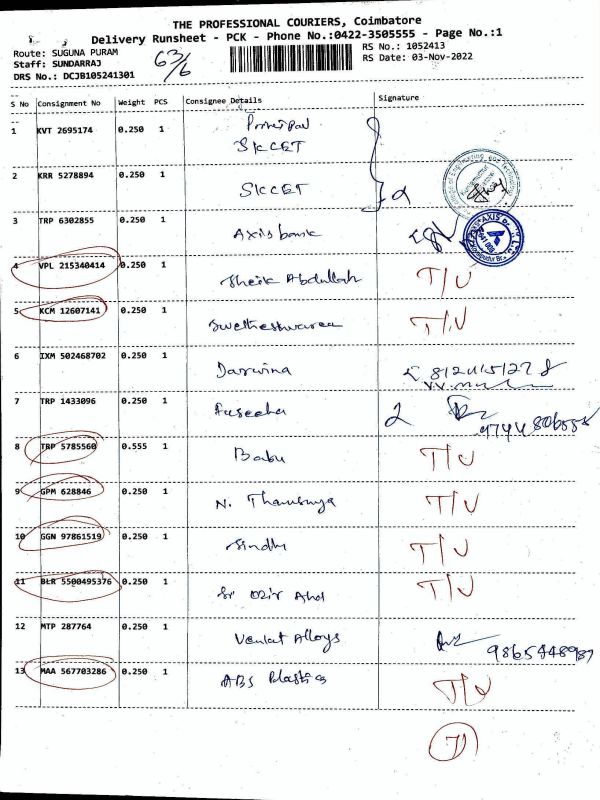 THE PROFESSIONAL COURIERS, Coimbatore
Delivery Runsheet - PCK - Phone No.:0422-3505555 - Page No.:1
Route: SUGUNA PURAM
RS No.: 1052413
Staff: SUNDARRAJ
63/6
RS Date: 03-Nov-2022
DRS No.: DCJB105241301
S No Consignment No Weight PCS Consignee Details Signature
1 KVT 2695174 0.250 1 Principal
SKCET
2 KRR 5278894 0.250 1 SKCET
3 TRP 6302855 0.250 1 Axisbank
AXIS
4 VPL 215340414 0.250 1 Sheik Abdullah T/U
5 KCM 12607141 0.250 1 T/U
6 IXM 502468702 0.250 1 Darwina
7 TRP 1433096 0.250 1
8 TRP 5785560 0.555 1 Babu T/U
9 GPM 628846 0.250 1 N. T/U
10 GGN 97861519 0.250 1 Sindhu T/U
11 BLR 5500495376 0.250 1 T/U
12 MTP 287764 0.250 1 Venkat Alloys
9865448987
13 MAA 567703286 0.250 1 ABS Plastics T/U